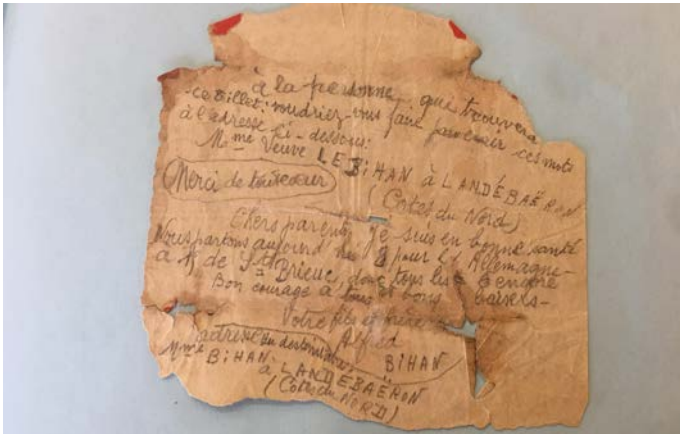 à la personne que trouvera
ce billet: voudriez-vous faire parvenir ces mots
à l'adresse ci-dessous:
Mme Veuve LE BIHAN à LANDÉBAËRON
(Côtes du Nord)
Merci de tout cœur
Chers parents, je suis en bonne santé
Nous partons aujourd'hui pour l'Allemagne-
à de St Brieuc, donc tous les encore
Bon courage à tous et bons baisers-
Votre fils et frère
Alfred
BIHAN
adresse du destinataire
Mme BIHAN
à LANDÉBAËRON
(Côtes du NORD)